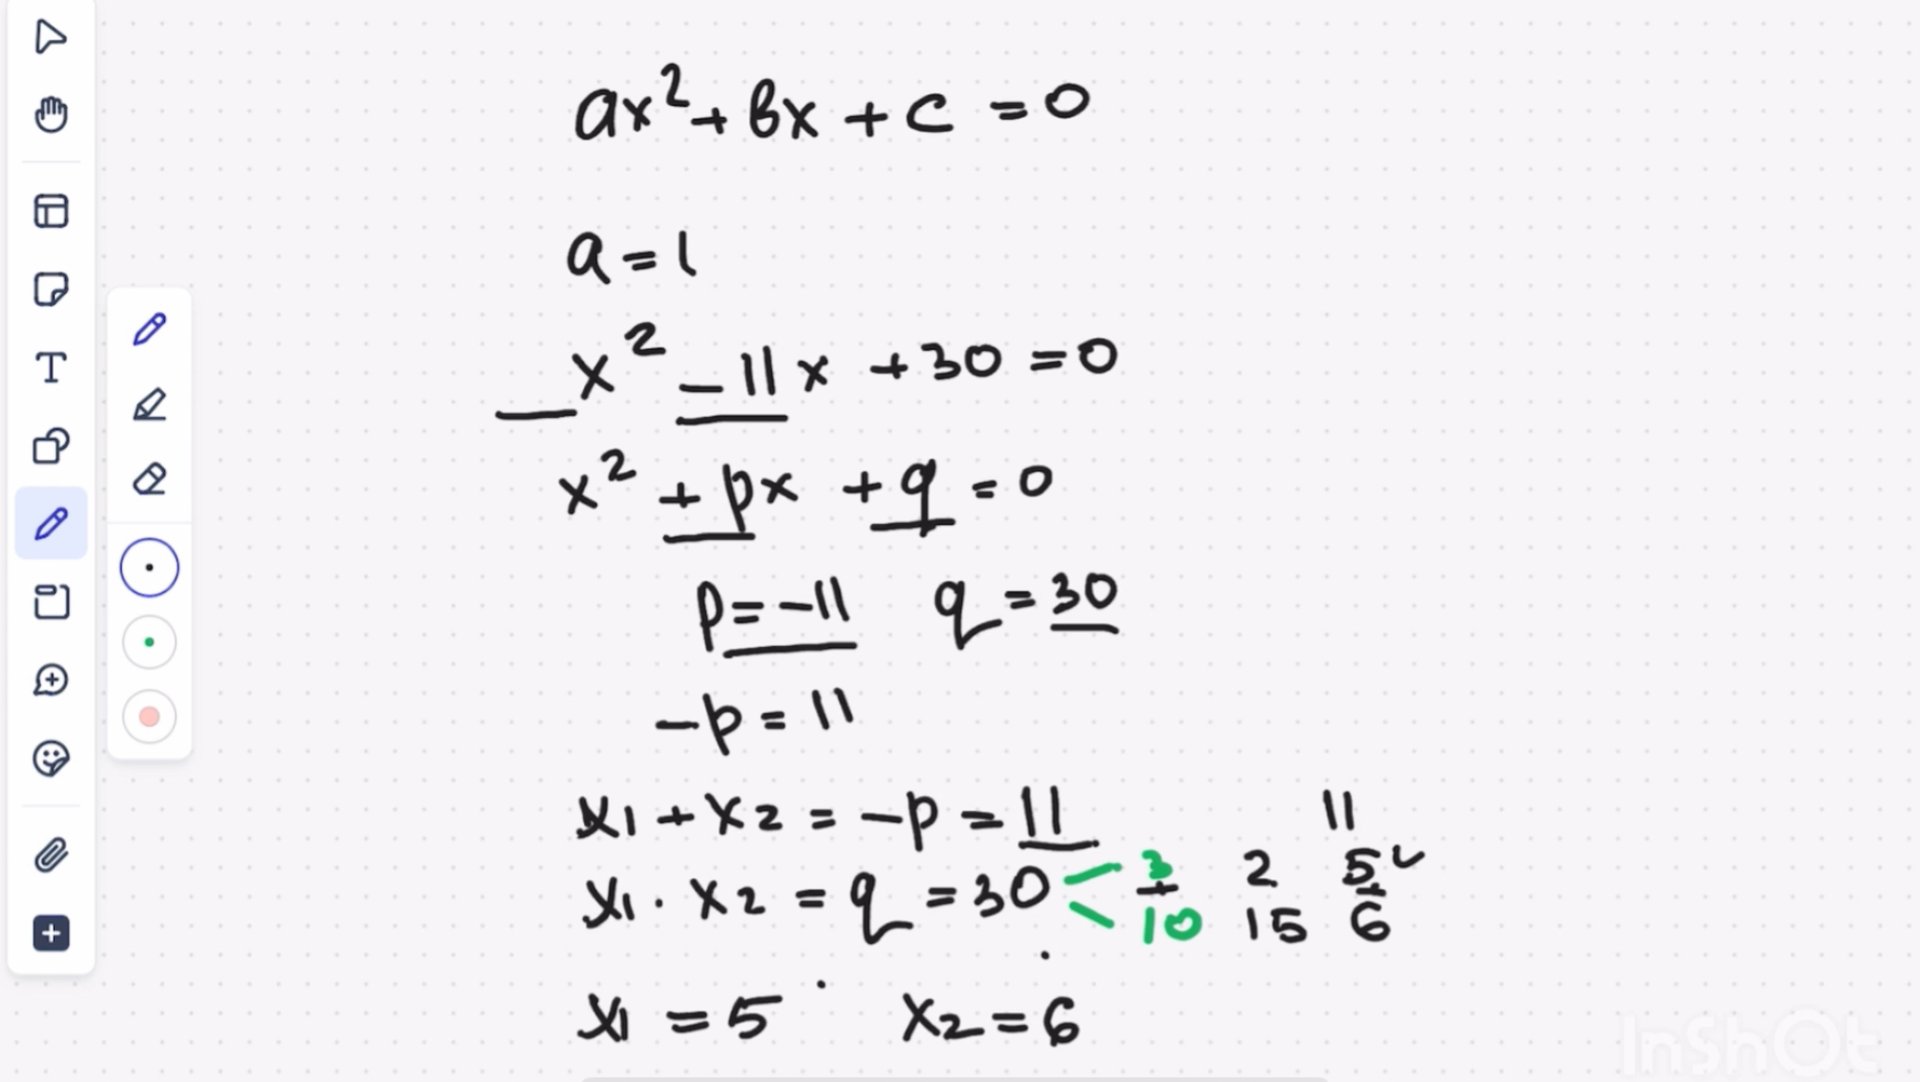 ax² + bx + c = 0
a = 1
x² - 11x + 30 = 0
x² + px + q = 0
p = -11 q = 30
-p = 11
x₁ + x₂ = -p = 11 11
x₁ · x₂ = q = 30 < 3 + 10 2 15 5 + 6
x₁ = 5 x₂ = 6
T
InShOt